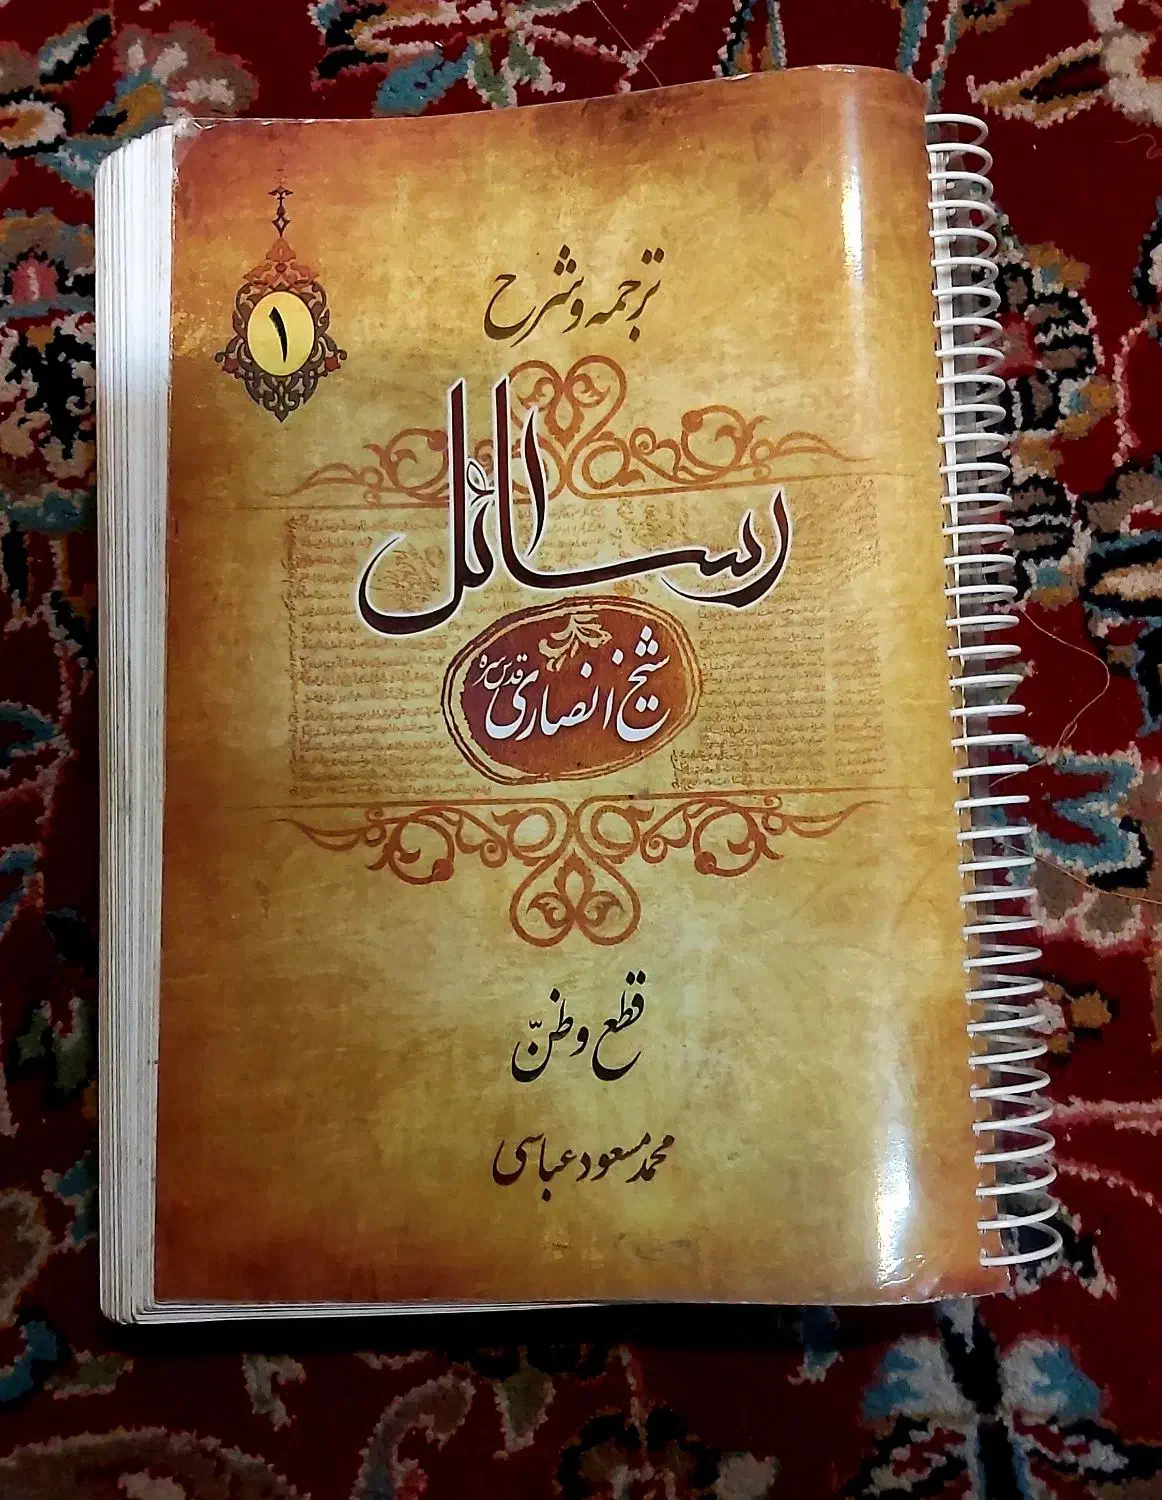 ترجمه و شرح
۱
رسائل
شیخ انصاری قدس سره
قطع و ظنّ
محمد مسعود عباسی